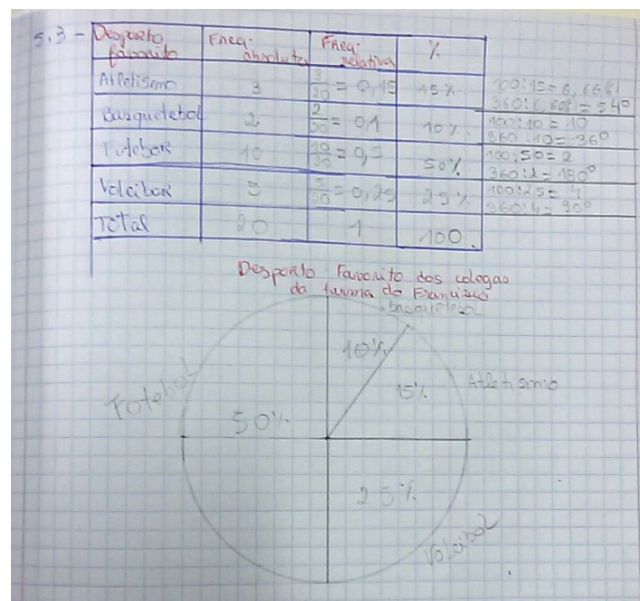 5.3 - Desporto favorito Freq. absoluta Freq. relativa %
Atletismo 3 3/20 = 0,15 15% 100:15=6,6661
360:6,6661=54°
Basquetebol 2 2/20 = 0,1 10% 100:10=10
360:10=36°
Futebol 10 10/20 = 0,5 50% 100:50=2
360:2=180°
Voleibol 5 5/20 = 0,25 25% 100:25=4
360:4=90°
Total 20 1 100.
Desporto Favorito dos colegas
da turma do Francisco
Basquetebol
10%
15% Atletismo
Futebol
50%
25%
Voleibol